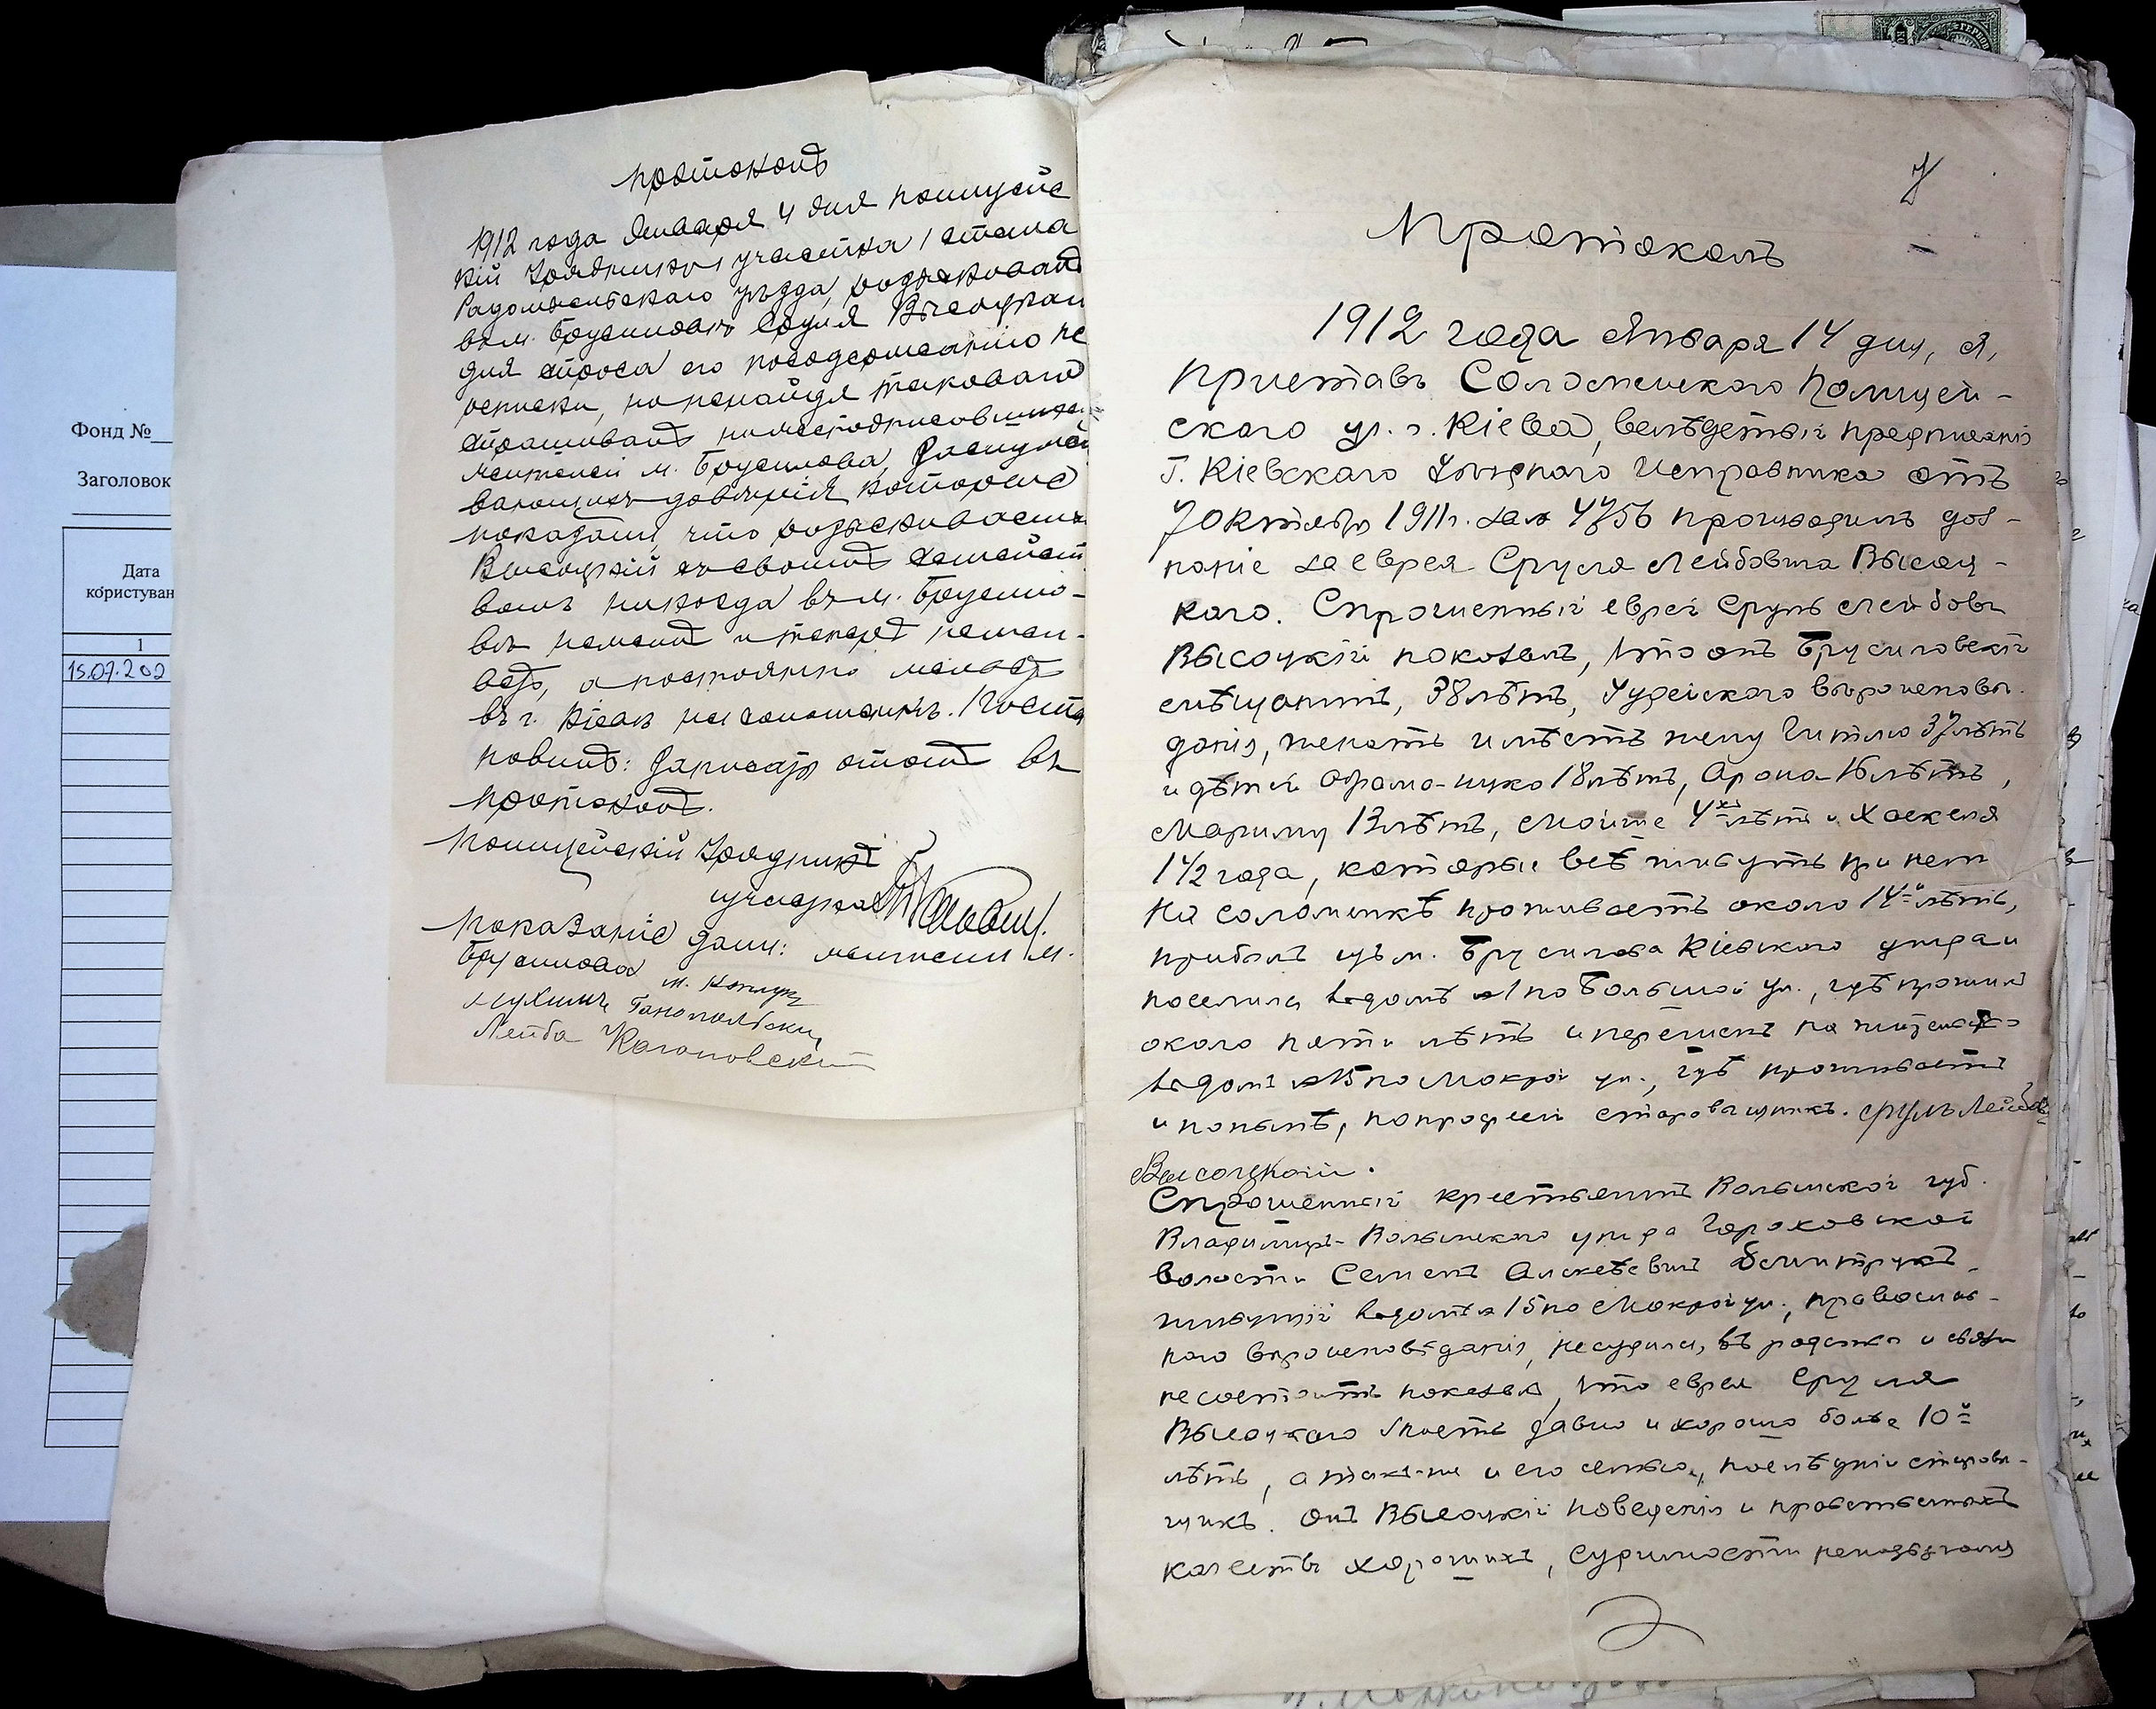 Фонд №
Заголовок
Дата
користуван
1
15.07.202
Протоколъ
1912 года Января 4 дня полицейс
кій Урядникъ 1 участка 1 стана
Радомысльскаго уѣзда, розыскивалъ
въ м. Брусиловѣ Сруля Высоцкаго
для опроса его по содержанію пе
реписки, но не найдя таковаго
спрашивалъ нижеподписавшихся
жителей м. Брусилова, заслужи
вающихъ довѣрія которые
показали, что розыскиваемый
Высоцкій со своимъ семейст
вомъ никогда въ м. Брусило-
вѣ не жилъ и теперь не жи-
ветъ, а постоянно живетъ
въ г. Кіевѣ на Соломенкѣ. Поста
новилъ: Записать этотъ въ
протоколъ.
Полицейскій Урядникъ
Показаніе дали: жители м.
Брусилова
Лейба Кагановскій
7
Протоколъ
1912 года Января 14 дня, я,
Приставъ Соломенскаго Полицей-
скаго уч. г. Кіева, вслѣдствіи предписанія
Г. Кіевскаго Уѣзднаго Исправника отъ
7 Октября 1911 г. за № 4756 производилъ доз-
наніе за еврея Сруля Лейбовича Высоц-
каго. Спрошенный еврей Сруль Лейбовъ
Высоцкій показалъ, что онъ Брусиловскій
мѣщанинъ, 38 лѣтъ, Іудейскаго вѣроисповѣ-
данія, женатъ имѣетъ жену Гитлю 37 лѣтъ
и дѣтей Абрама-Ицко 18 лѣтъ, Арона 16 лѣтъ,
Маріиму 13 лѣтъ, Мойше 4хъ лѣтъ и Хаскеля
1 1/2 года, которые всѣ живутъ при немъ
На Соломенкѣ проживаетъ около 14и лѣтъ,
прибылъ изъ м. Брусилова Кіевскаго уѣзда и
поселился въ домѣ №1 по Большой ул., гдѣ прожилъ
около пяти лѣтъ и перешелъ на жительство
въ домъ №15 по Мокрой ул., гдѣ проживаетъ
и понынѣ, по професіи старовѣщникъ. Сруль Лейбовъ
Высоцкій.
Спрошенный крестьянинъ Волынской губ.
Владиміръ-Волынскаго уѣзда Гороховской
волости Семенъ Алексѣевичъ Демитрукъ,
живущій въ домѣ № 15 по Мокрой ул., православ-
наго вѣроисповѣданія, не судился, въ родствѣ и связи
не состоитъ показалъ, что еврея Сруля
Высоцкаго знаетъ давно и хорошо болѣе 10и
лѣтъ, а также и его семью, послѣдній старовѣ-
щикъ. Онъ Высоцкій поведенія и нравственныхъ
качествъ хорошихъ, судимости